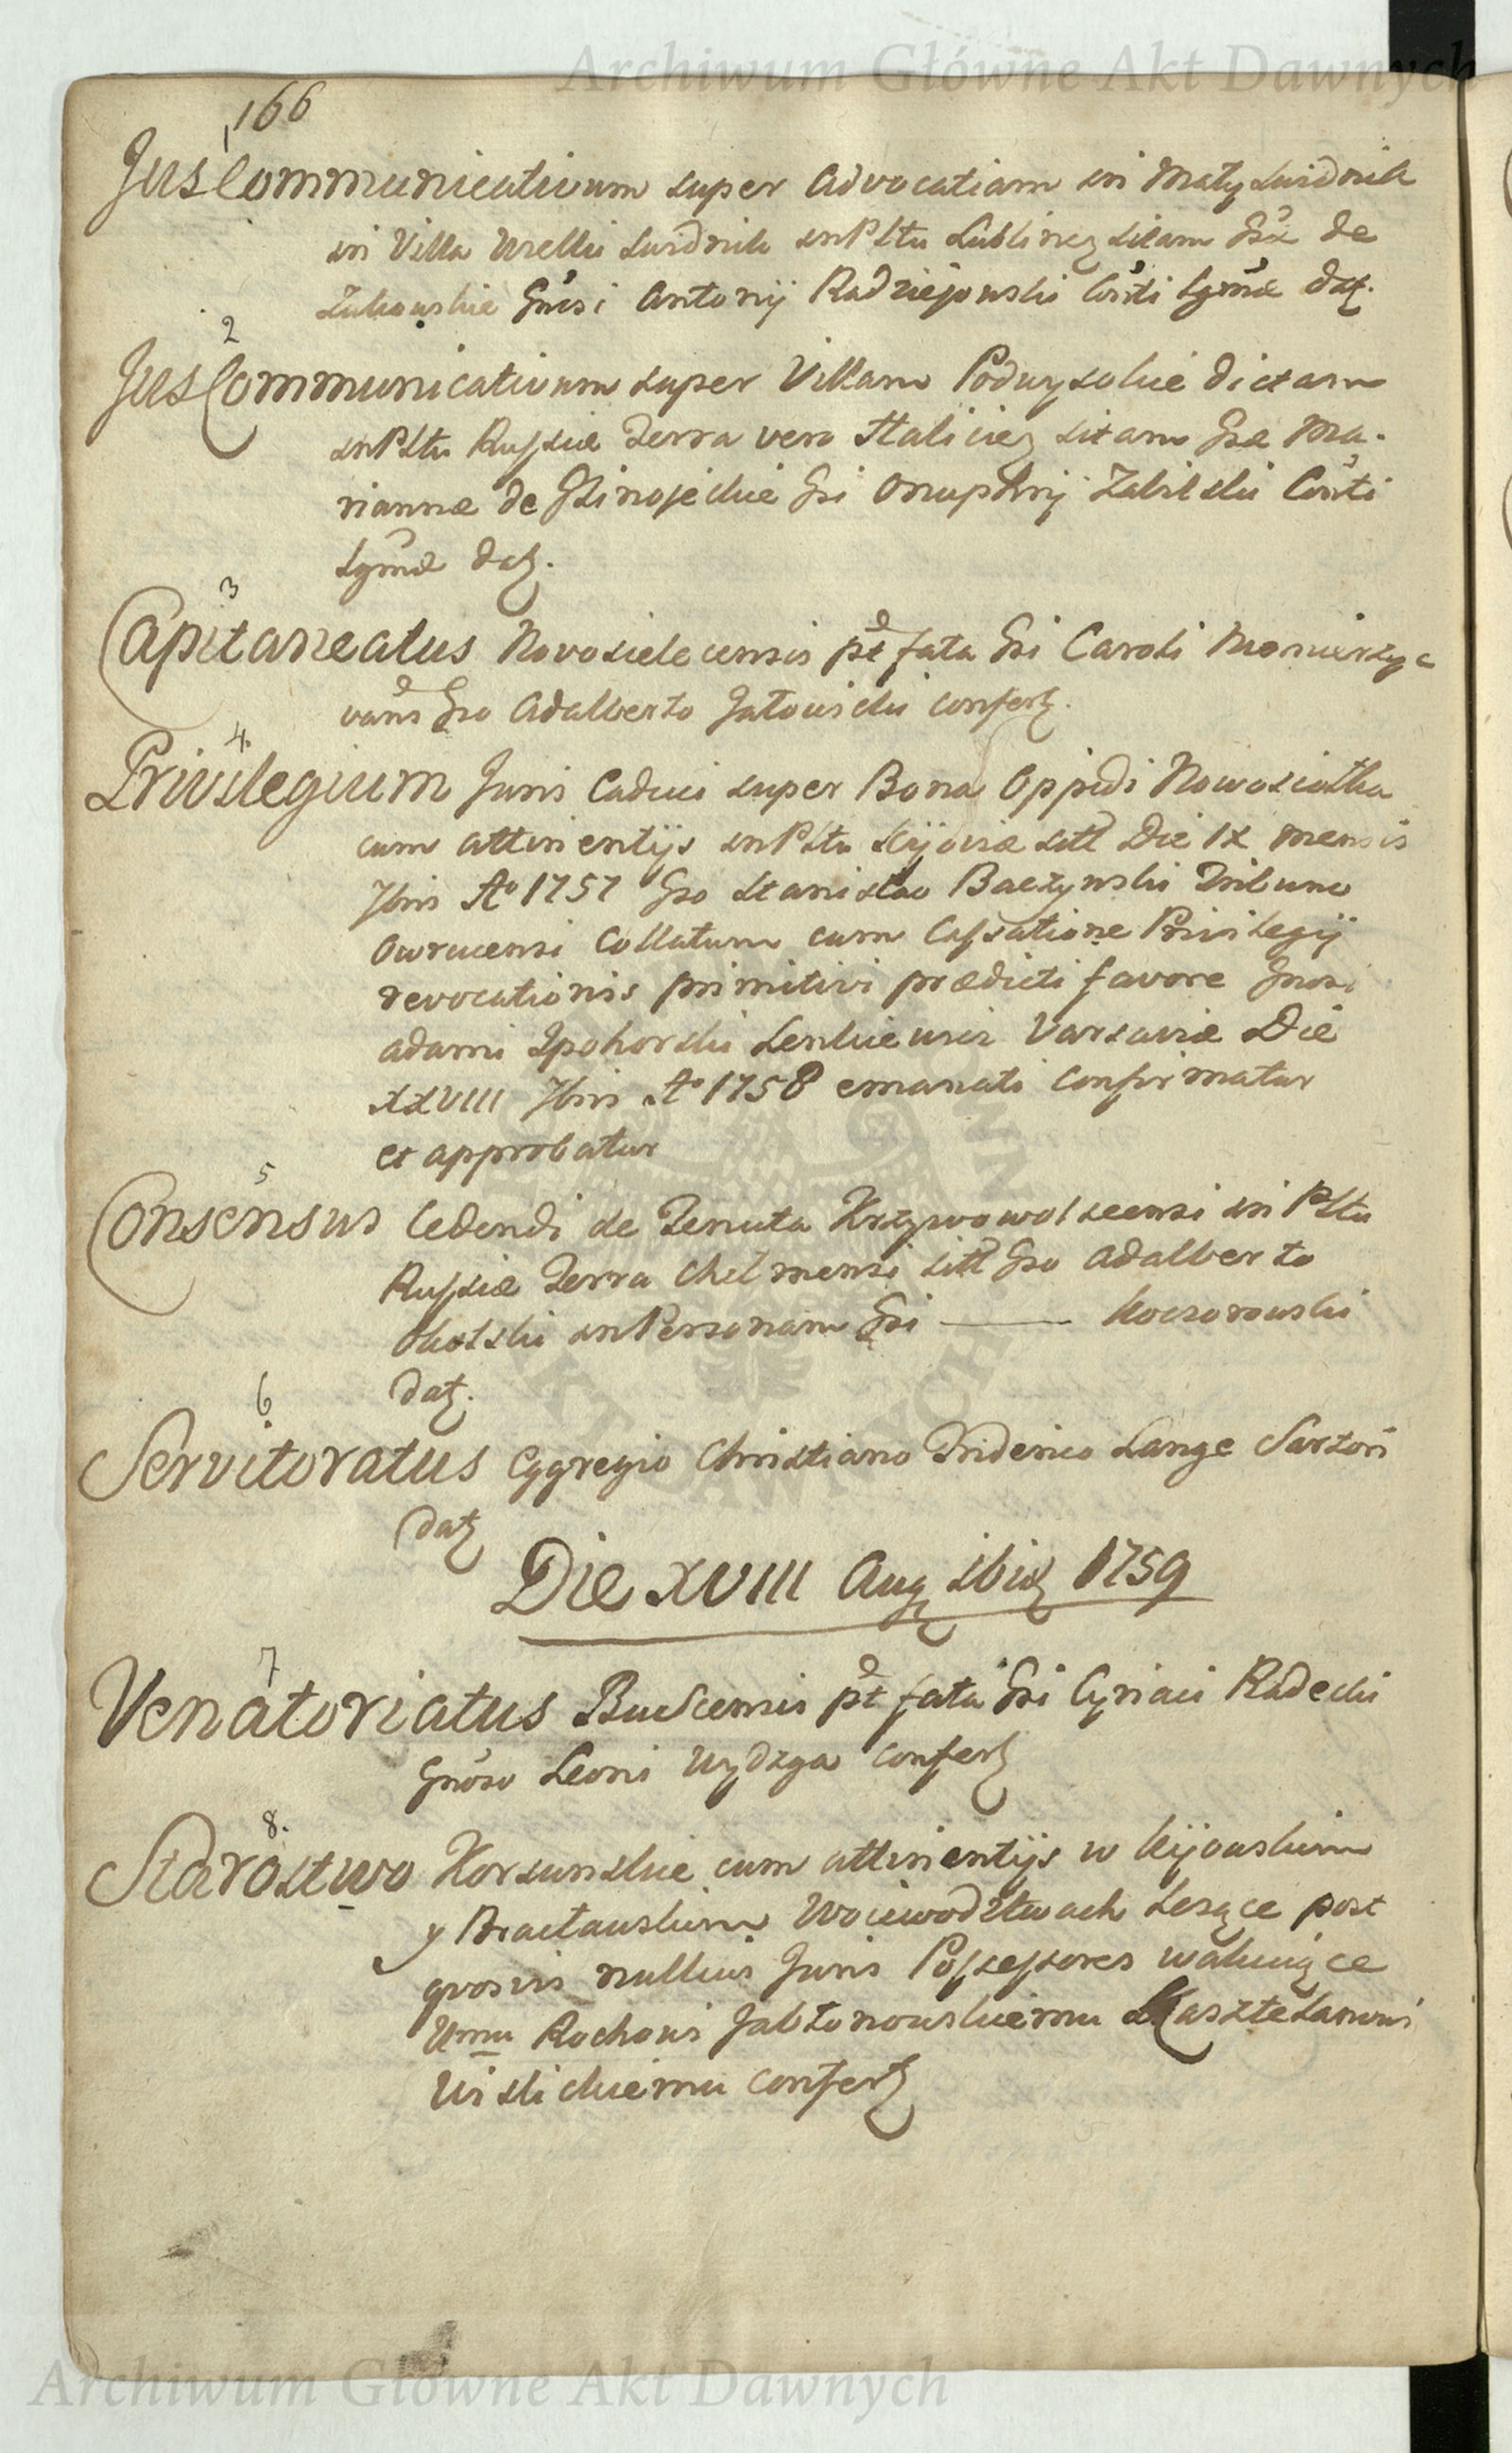 Archiwum Główne Akt Dawnych
166
1
Jus Communicativum super Advocatiam in Mały Swidnik
in Villa Wielki Swidnik in Pltu Lublinen sitam Gsæ de
Zukowskie Gnosi Antonij Radziejowski Conti Lgmæ dat.
2
Jus Communicativum super Villam Podwysokie dictam
in Pltu Russiæ Terra vero Halicien sitam Gsæ Ma-
riannæ de Glinojeckie Gsi Onuphrij Zabilski Conti
Lgmæ dat.
3
Capitaneatus Novosielecensis pt fata Gsi Caroli
vans Gso Adalberto Jatowicki confert.
4.
Privilegium Juris Caduci super Bona Oppidi Nowosiołka
cum attinentijs in Pltu Kijoviæ sitt Die IX mensis
7bris Ao 1757 Gso Stanislao Baczynski Tribuno
Owrucensi Collatum cum Cassatione Privilegij
revocationis primitivi prædicti favore Gnosi
Adami Ipohorski Lenkiewicz Varsaviæ Die
XXVIII 7bris Ao 1758 emanati confirmatur
et approbatur
5
Consensus Cedendi de Tenuta Krzywowolscensi in Pltu
Russiæ Terra Chelmensi sitt Gso Adalberto
Okolski in Personam Gsi ——— Koczorowski
dat.
6
Servitoratus Eggregio Christiano Friderico Lange Sartori
dat
Die XVIII Aug ibid 1759
7
Venatoriatus Buscensis pt fata Gsi Cyriaci Radecki
Gnoso Leoni Wydzga confert
8.
Starostwo Korsunskie cum attinentijs w Kijowskim
y Bracławskim Woiewodztwach Lezące post
qvosvis nullius Juris Possessores wakuiące
Wmu Rochowi Jabłonowskiemu Kasztelanowi
Wislickiemu confert
Archiwum Główne Akt Dawnych